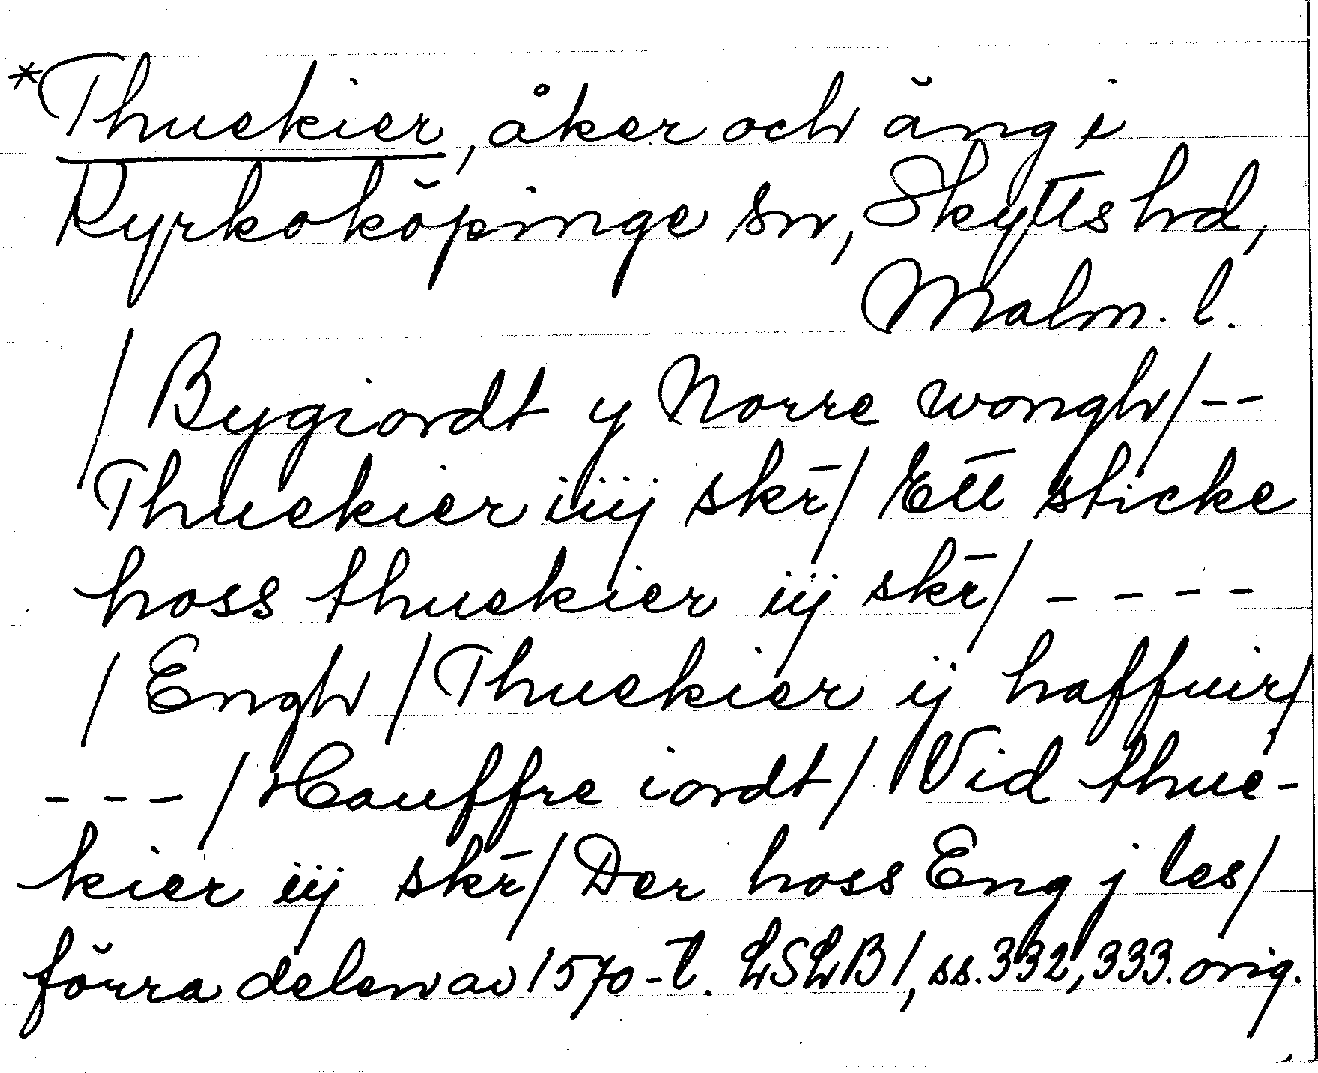 *Thuekier, åker och äng i
Kyrkoköpinge sn, Skytts hd,
Malm. l.
/ Bygiordt y Norre wongh/--
Thuekier iiij skr̄/ Ett sticke
hoss thuekier iij skr̄/ ----
/ Engh / Thuekier ij haffuir/
--- / Hauffre iordt / Vid thue-
kier iij skr̄/ Der hoss Eng j les/
förra delen av 1570-t. LSLB 1, ss. 332, 333. orig.